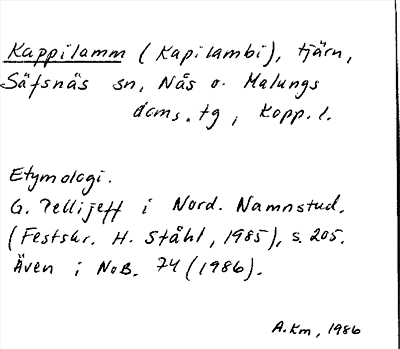 Kappilamm (Kapilambi), tjärn,
Säfsnäs sn, Nås o. Malungs
doms.tg, Kopp. l.
Etymologi.
G. Pellijeff i Nord. Namnstud.
(Festskr. H. Ståhl, 1985), s. 205.
Även i NoB. 74 (1986).
A.Km, 1986